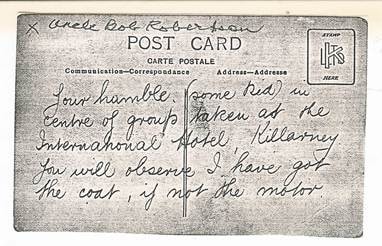 x Uncle Bob Robertson
POST CARD
CARTE POSTALE
Communication—Correspondance
Address—Addresse
STAMP
HERE
Your humble. (some kid) in
centre of group taken at the
International Hotel, Killarney
You will observe I have got
the coat, if not the motor